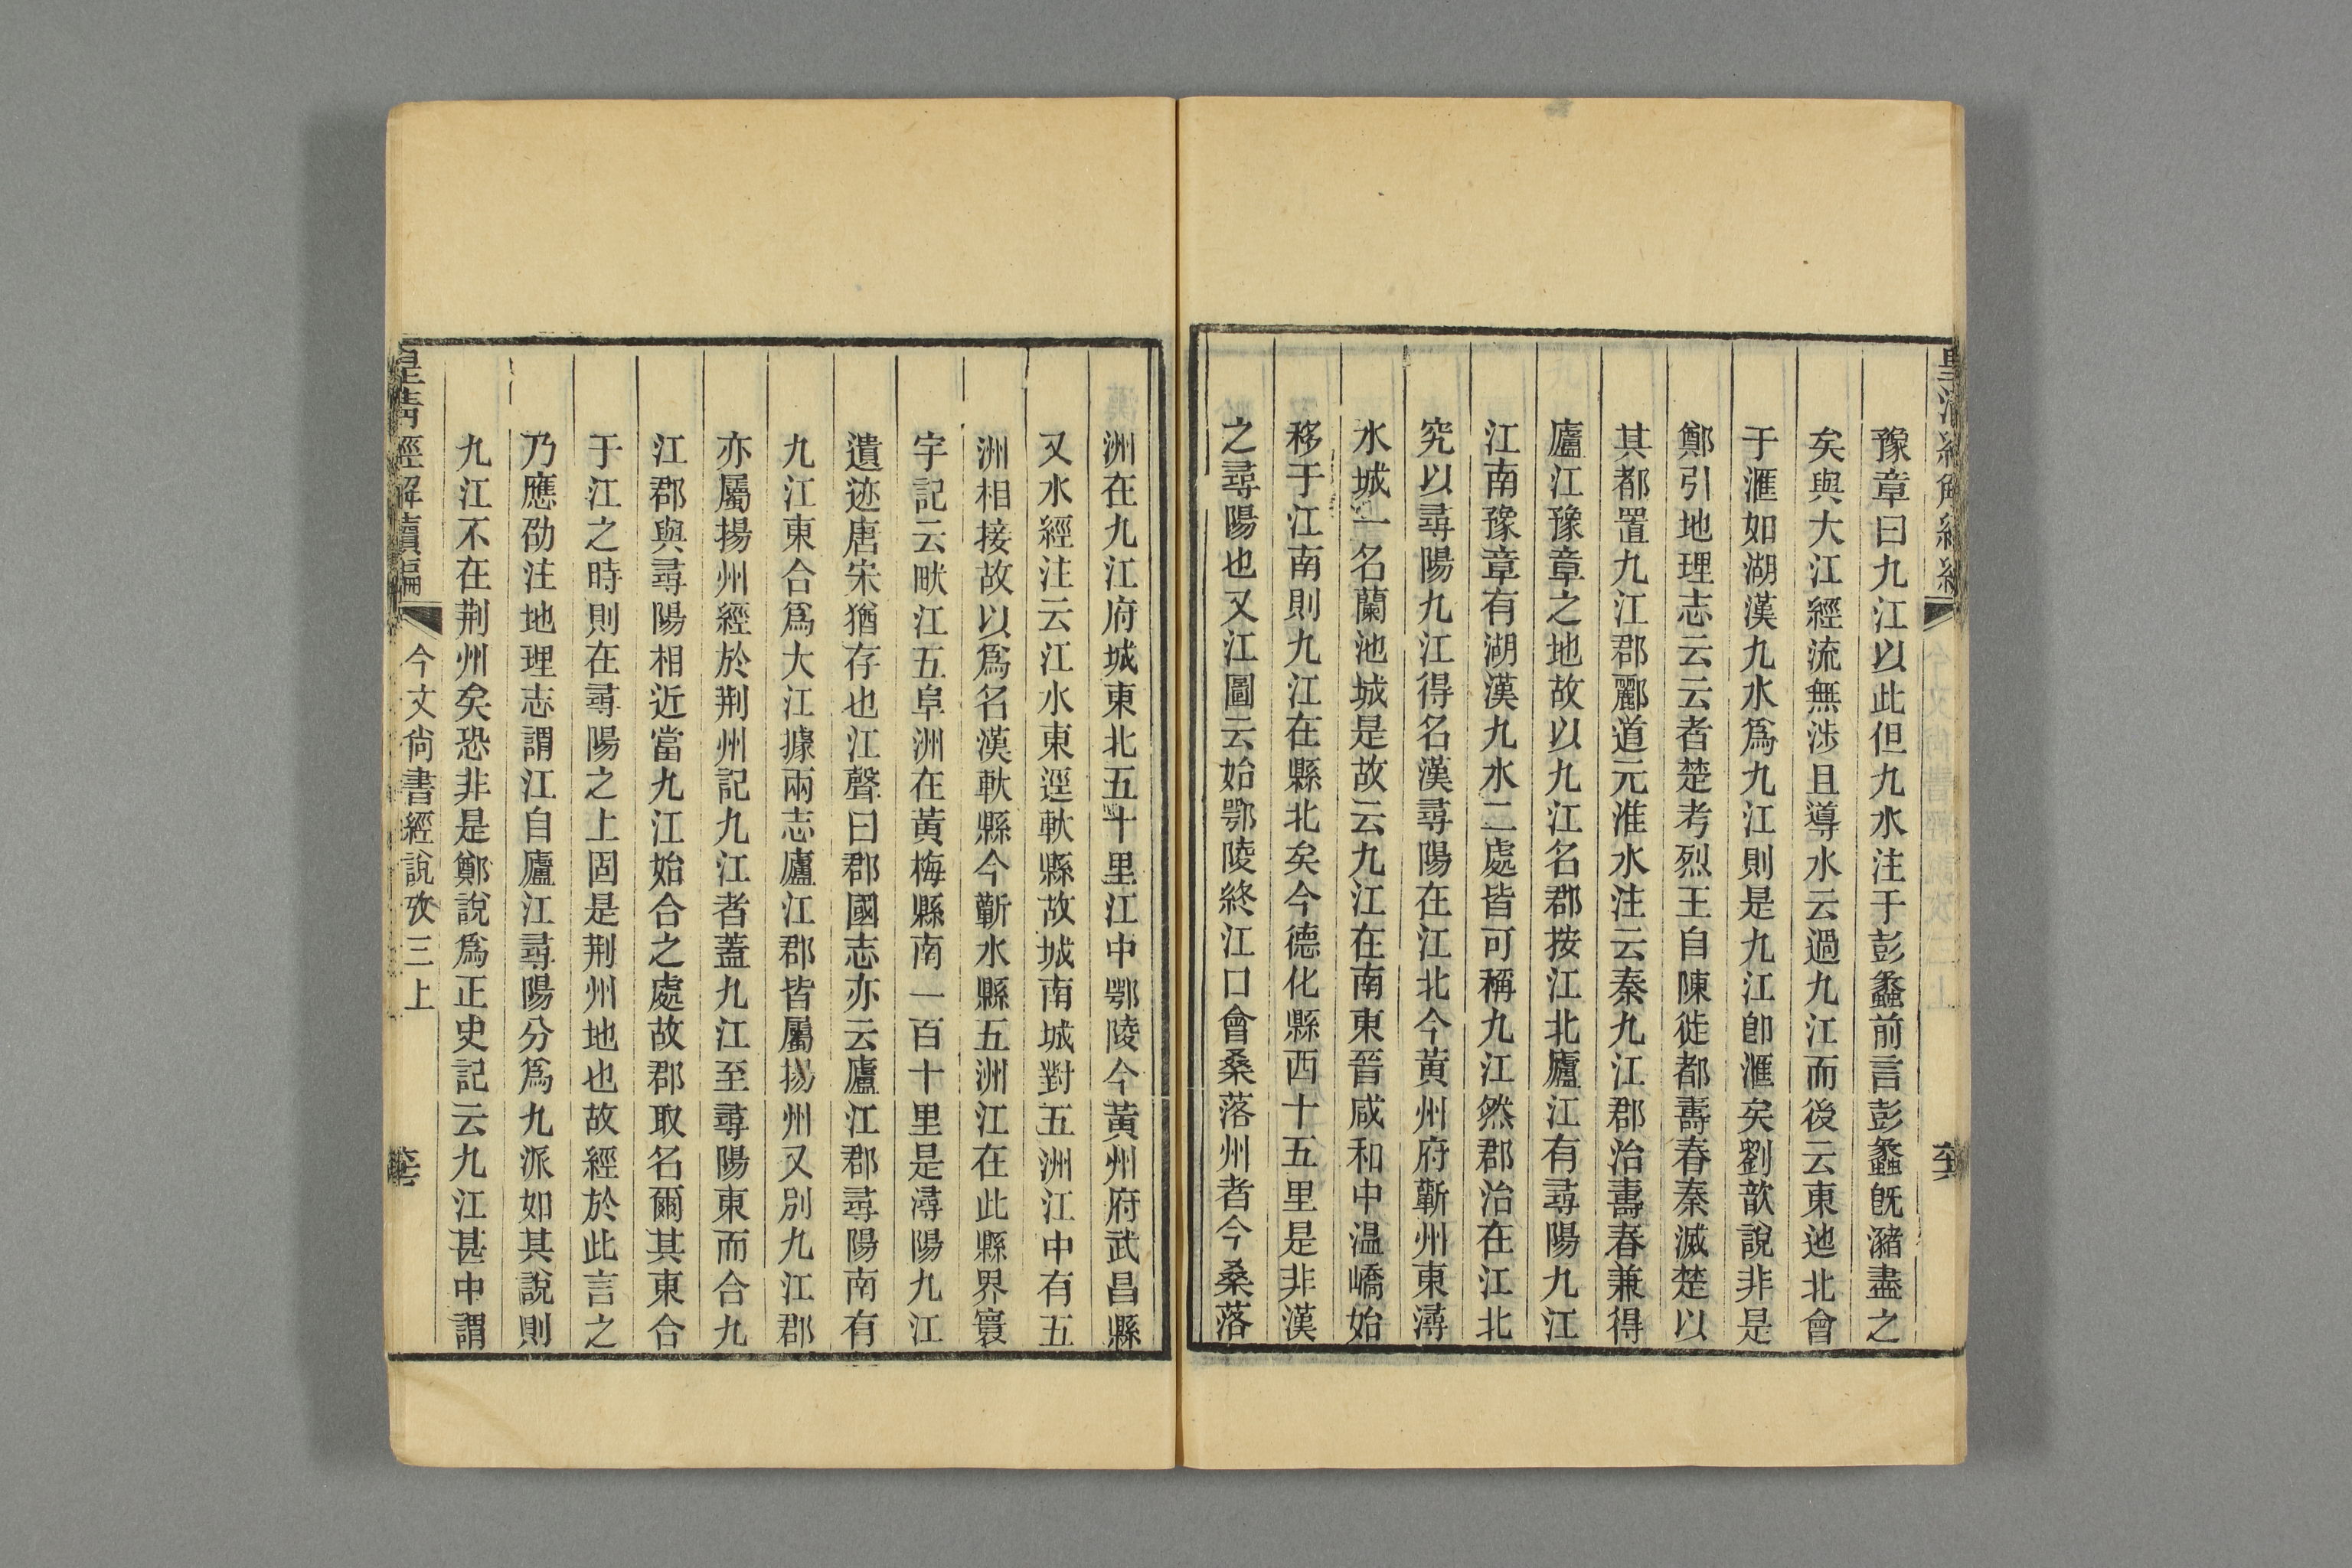 豫章曰九江以此但九水注于彭蠡前言彭蠡旣瀦盡之
矣與大江經流無涉且導水云過九江而後云東迆北會
于滙如湖漢九水爲九江則是九江卽滙矣劉歆說非是
鄭引地理志云云者楚考烈王自陳徙都壽春秦滅楚以
其都置九江郡酈道元淮水注云秦九江郡治壽春兼得
廬江豫章之地故以九江名郡按江北廬江有尋陽九江
江南豫章有湖漢九水二處皆可稱九江然郡治在江北
究以尋陽九江得名漢尋陽在江北今黃州府蘄州東潯
水城一名蘭池城是故云九江在南東晉咸和中温嶠始
移于江南則九江在縣北矣今德化縣西十五里是非漢
之尋陽也又江圖云始鄂陵終江口會桑落州者今桑落
洲在九江府城東北五十里江中鄂陵今黃州府武昌縣
又水經注云江水東逕軑縣故城南城對五洲江中有五
洲相接故以爲名漢軑縣今蘄水縣五洲江在此縣界寰
宇記云畎江五阜洲在黃梅縣南一百十里是潯陽九江
遺迹唐宋猶存也江聲曰郡國志亦云廬江郡尋陽南有
九江東合爲大江據兩志廬江郡皆屬揚州又別九江郡
亦屬揚州經於荆州記九江者蓋九江至尋陽東而合九
江郡與尋陽相近當九江始合之處故郡取名爾其東合
于江之時則在尋陽之上固是荆州地也故經於此言之
乃應劭注地理志謂江自廬江尋陽分爲九派如其說則
九江不在荆州矣恐非是鄭說爲正史記云九江甚中謂
皇清經解續編
今文尙書經說攷三上